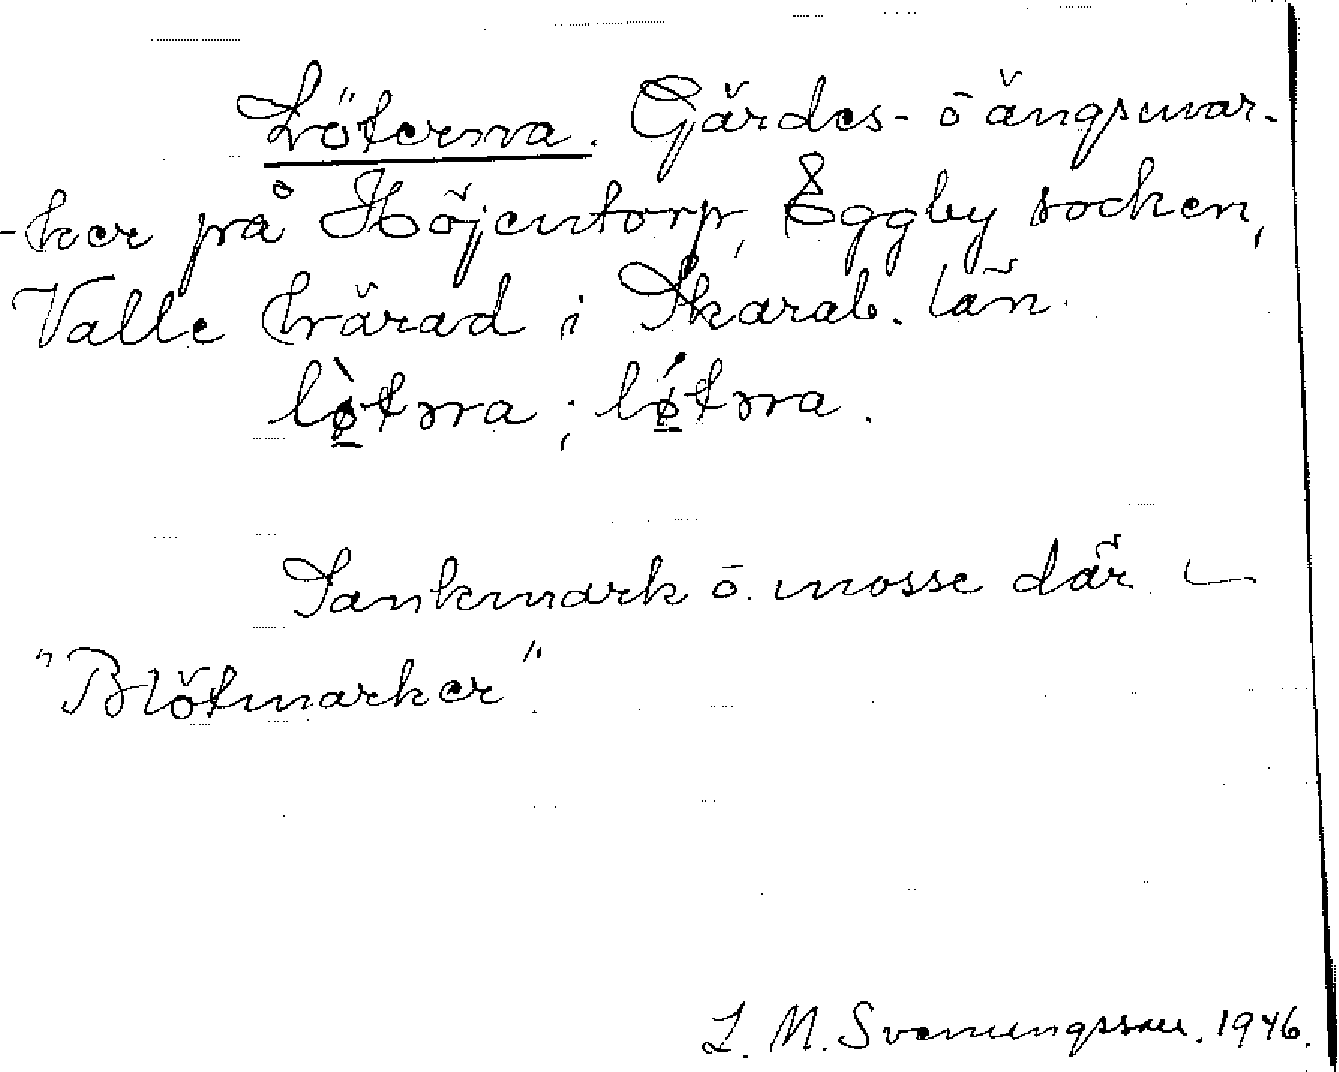 Löterna. Gärdes- o ängsmar-
-ker på Höjentorp, Eggby socken,
Valle härad i Skarab. län.
lø̀tɘrna; lǿtɘrna.
Sankmark o. mosse där —
"Blötmarker".
L. M. Svenungsson. 1946.